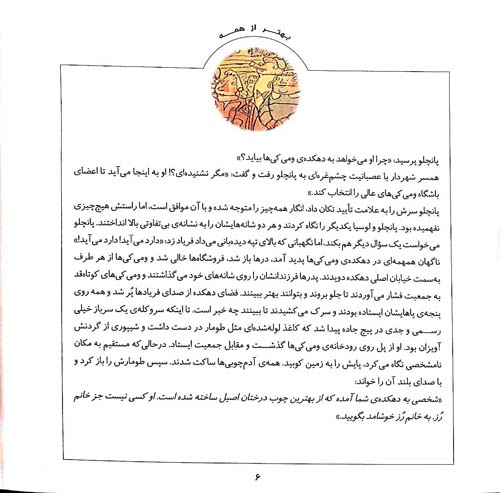 بهتر از همه
پانچلو پرسید: «چرا او می‌خواهد به دهکده‌ی ومی‌کی‌ها بیاید؟»
همسر شهردار با عصبانیت چشم‌غره‌ای به پانچلو رفت و گفت: «مگر نشنیده‌ای؟! او به اینجا می‌آید تا اعضای
باشگاه ومی‌کی‌های عالی را انتخاب کند.»
پانچلو سرش را به علامت تأیید تکان داد، انگار همه‌چیز را متوجه شده و با آن موافق است، اما راستش هیچ‌چیزی
نفهمیده بود. پانچلو و لوسیا یکدیگر را نگاه کردند و هر دو شانه‌هایشان را به نشانه‌ی بی‌تفاوتی بالا انداختند. پانچلو
می‌خواست یک سؤال دیگر هم بکند، اما نگهبانی که بالای تپه دیده‌بانی می‌داد فریاد زد: «دارد می‌آید! دارد می‌آید!»
ناگهان همهمه‌ای در دهکده‌ی ومی‌کی‌ها پدید آمد، درها باز شد، فروشگاه‌ها خالی شد و ومی‌کی‌ها از هر طرف
به‌سمت خیابان اصلی دهکده دویدند. پدرها فرزندانشان را روی شانه‌های خود می‌گذاشتند و ومی‌کی‌های کوتاه‌قد
به جمعیت فشار می‌آوردند تا جلو بروند و بتوانند بهتر ببینند. فضای دهکده از صدای فریادها پُر شد و همه روی
پنجه‌ی پاهایشان ایستاده بودند و سرک می‌کشیدند تا ببینند چه خبر است. تا اینکه سروکله‌ی یک سرباز خیلی
رسمی و جدی در پیچ جاده پیدا شد که کاغذ لوله‌شده‌ای مثل طومار در دست داشت و شیپوری از گردنش
آویزان بود. او از پل روی رودخانه‌ی ومی‌کی‌ها گذشت و مقابل جمعیت ایستاد. درحالی‌که مستقیم به مکان
نامشخصی نگاه می‌کرد، پایش را به زمین کوبید. همه‌ی آدم‌چوبی‌ها ساکت شدند. سپس طومارش را باز کرد و
با صدای بلند آن را خواند:
«شخصی به دهکده‌ی شما آمده که از بهترین چوب درختان اصیل ساخته شده است. او کسی نیست جز خانم
رُز. به خانم رُز خوشامد بگویید.»
۶